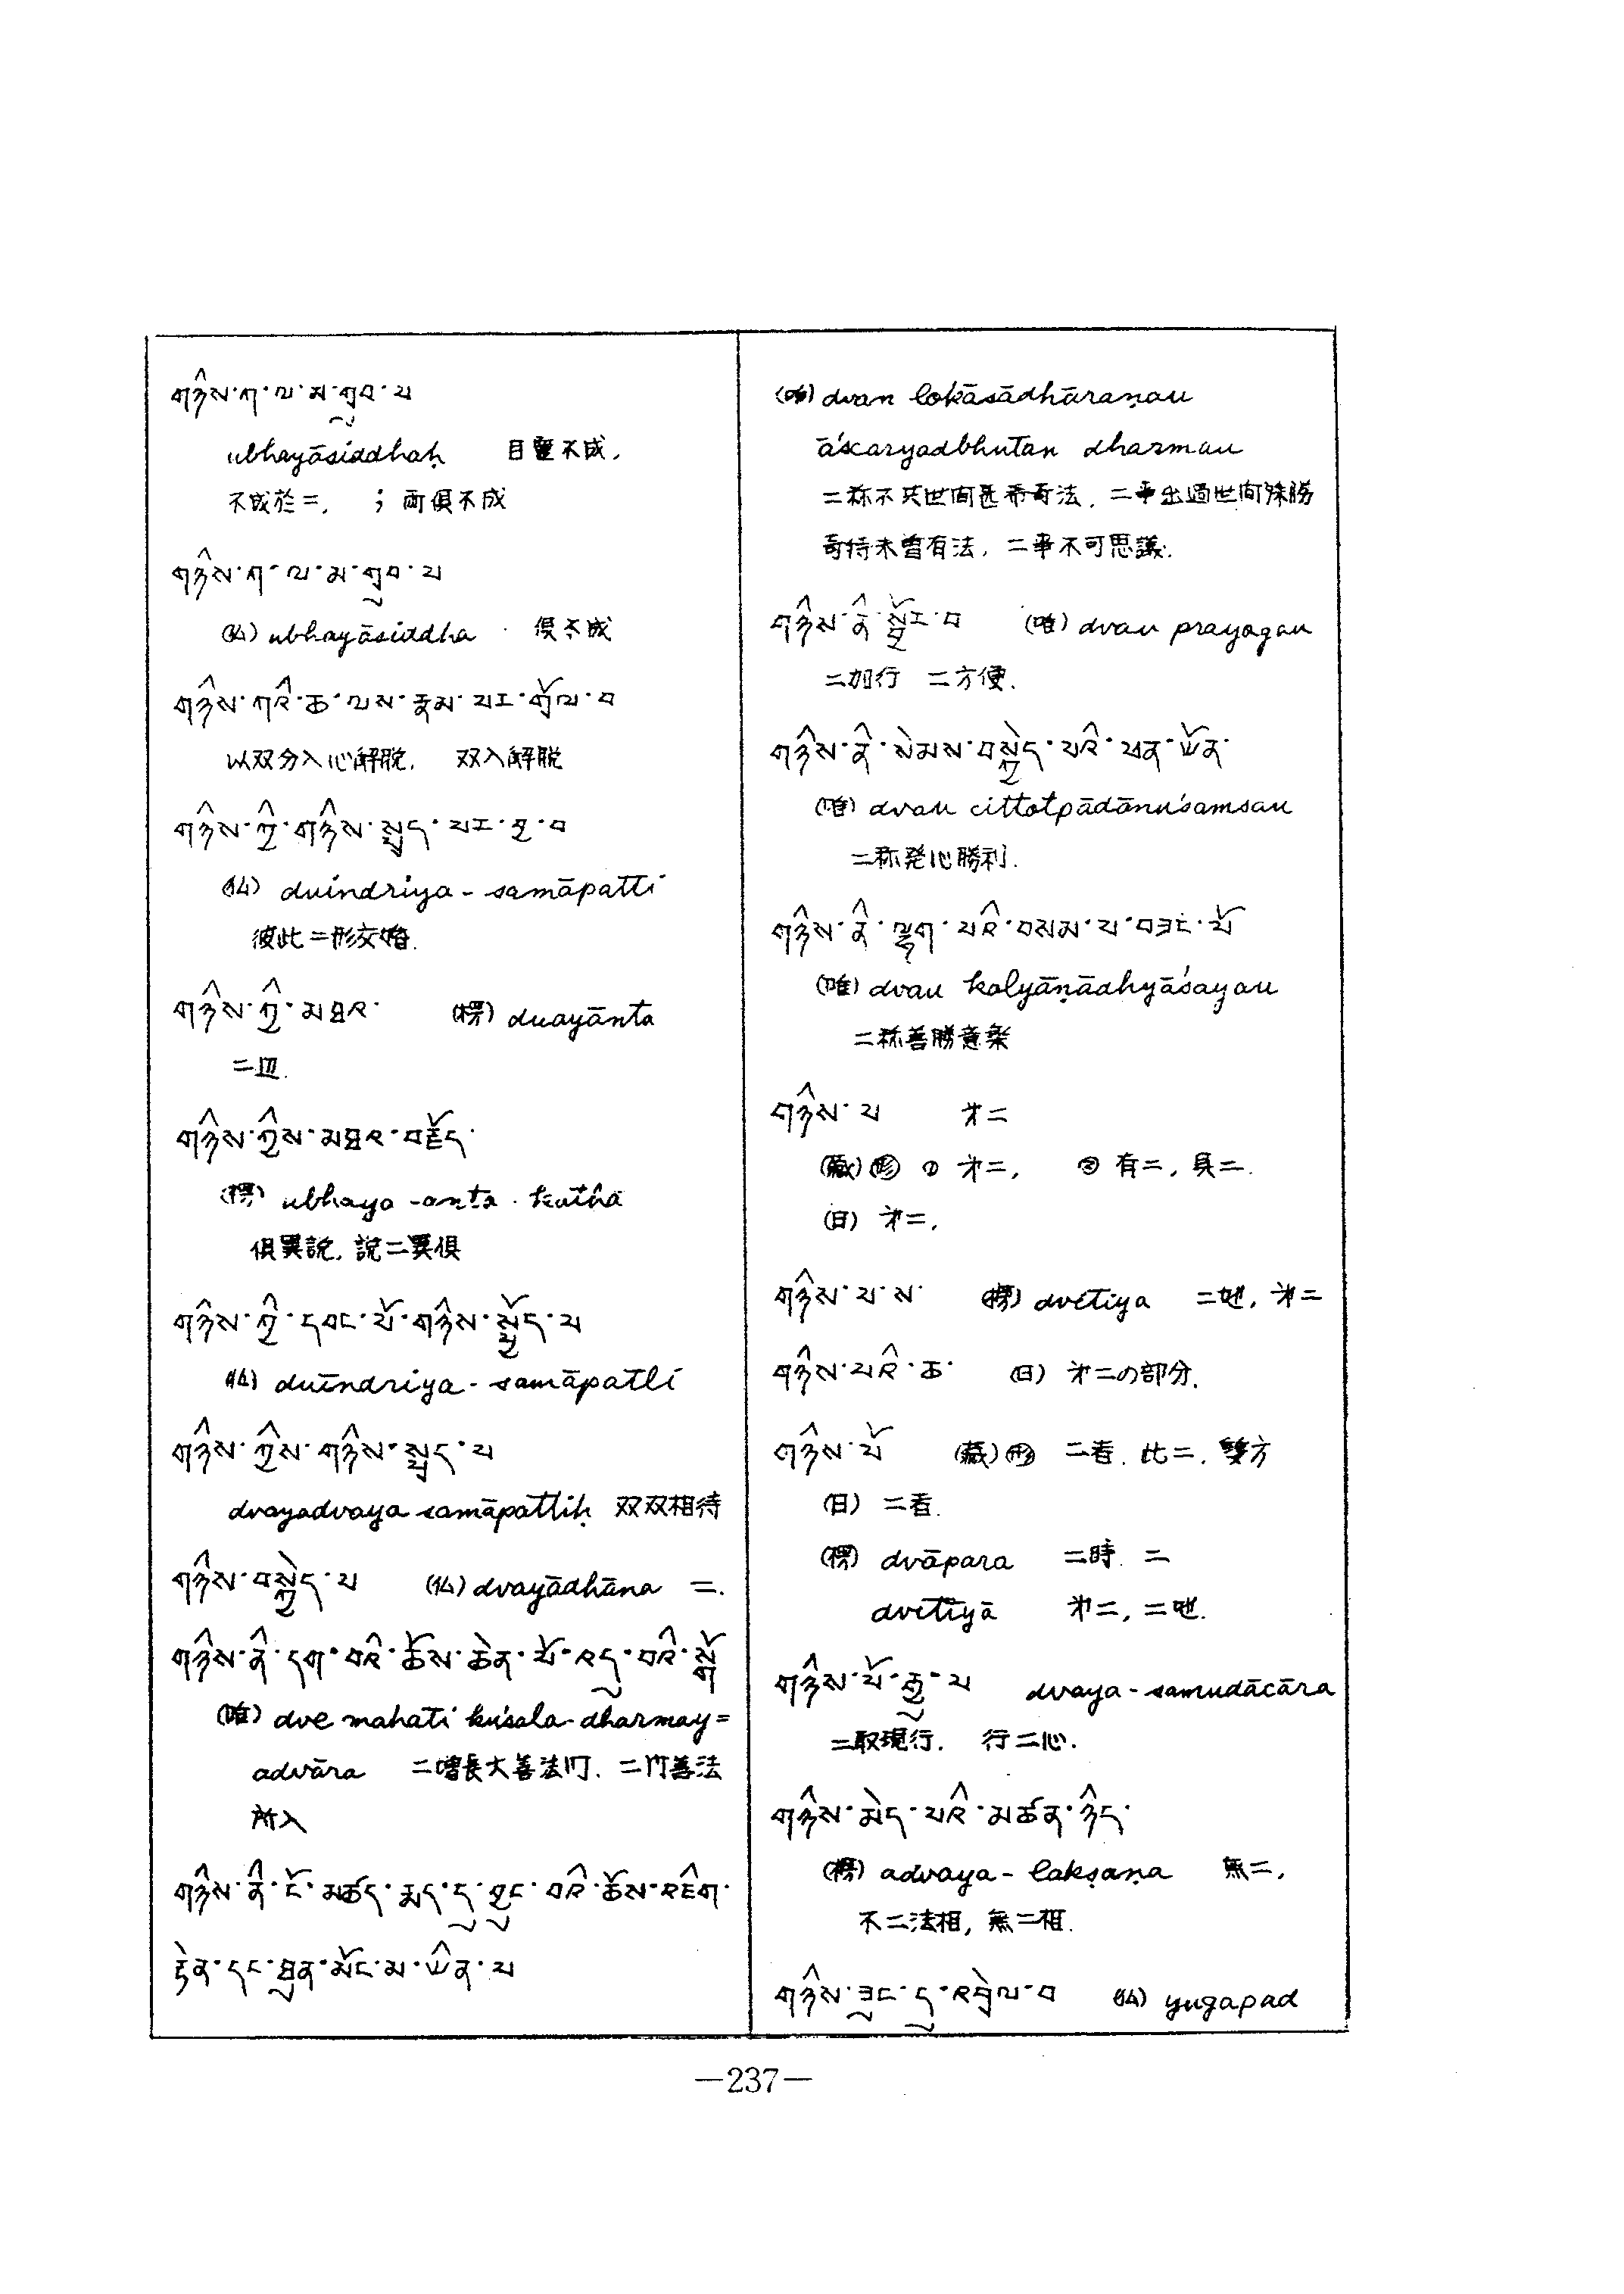 གཉིས་ཀ་ལ་མ་གྲུབ་པ
ubhayāsiddhaḥ 目雙不成,
不成於二, ; 兩俱不成
གཉིས་ཀ་ལ་མ་གྲུབ་པ
(仏) ubhayāsiddha 俱不成
གཉིས་ཀའི་ཆ་ལས་རྣམ་པར་གྲོལ་བ
以双分入心解脱, 双入解脱
གཉིས་ཀྱི་གཉིས་སྤྲད་པར་བྱ་བ
(仏) duindriya-samāpatti
彼此二形交婚.
གཉིས་ཀྱི་མཐར་ (楞) duayānta
二
གཉིས་ཀྱིས་མཐར་བརྗོད་
(楞) ubhaya-anta-kathā
俱異說, 說二異俱
གཉིས་ཀྱི་དབང་པོ་གཉིས་སྤྲོད་པ
(仏) duīndriya-samāpatti
གཉིས་ཀྱིས་གཉིས་སྤྲད་པ
dvayadvaya samāpattiḥ 双双相待
གཉིས་བསྐྱེད་པ (仏) dvayādhāna 二.
གཉིས་ནི་དག་བའི་ཆོས་ཆེན་པོ་འདུ་བའི་སྒོ
(唯) dve mahati kuśala-dharmay=
advāra 二增長大善法門, 二門善法
所入
གཉིས་ནི་ངོ་མཚད་རྨད་དུ་བྱུང་བའི་ཆོས་འཇིག་
རྟེན་དང་ཐུན་མོང་མ་ཡིན་པ
(唯) dvan lokāsādhāraṇau
āścaryadbhutan dharmau
二称不共世間甚希奇法, 二事出過世間殊勝
奇特未曽有法, 二事不可思議.
གཉིས་ནི་སྦྱོར་བ (唯) dvau prayogau
二加行 二方便.
གཉིས་ནི་སེམས་བསྐྱེད་པའི་ཕན་ཡོན་
(唯) dvau cittotpādānuśamsau
二称発心勝利.
གཉིས་ནི་ལྷག་པའི་བསམ་པ་བཟང་པོ
(唯) dvau kalyāṇādhyāśayau
二称善勝意楽
གཉིས་པ 才二
(藏) 形 ① 才二, ② 有二, 具二.
(日) 才二,
གཉིས་པ་ས་ (楞) dvetiya 二地, 才二
གཉིས་པའི་ཆ་ (日) 才二の部分.
གཉིས་པོ (藏) 形 二者, 此二, 雙方
(日) 二者.
(楞) dvāpara 二時, 二
dvetīyā 才二, 二地.
གཉིས་པོ་རྒྱུ་པ dvaya-samudācāra
二取現行, 行二心.
གཉིས་མེད་པའི་མཚན་ཉིད་
(楞) advaya-lakṣaṇa 無二,
不二法相, 無二相.
གཉིས་ཟུང་དུ་འབྲེལ་བ (仏) yugapad
—237—